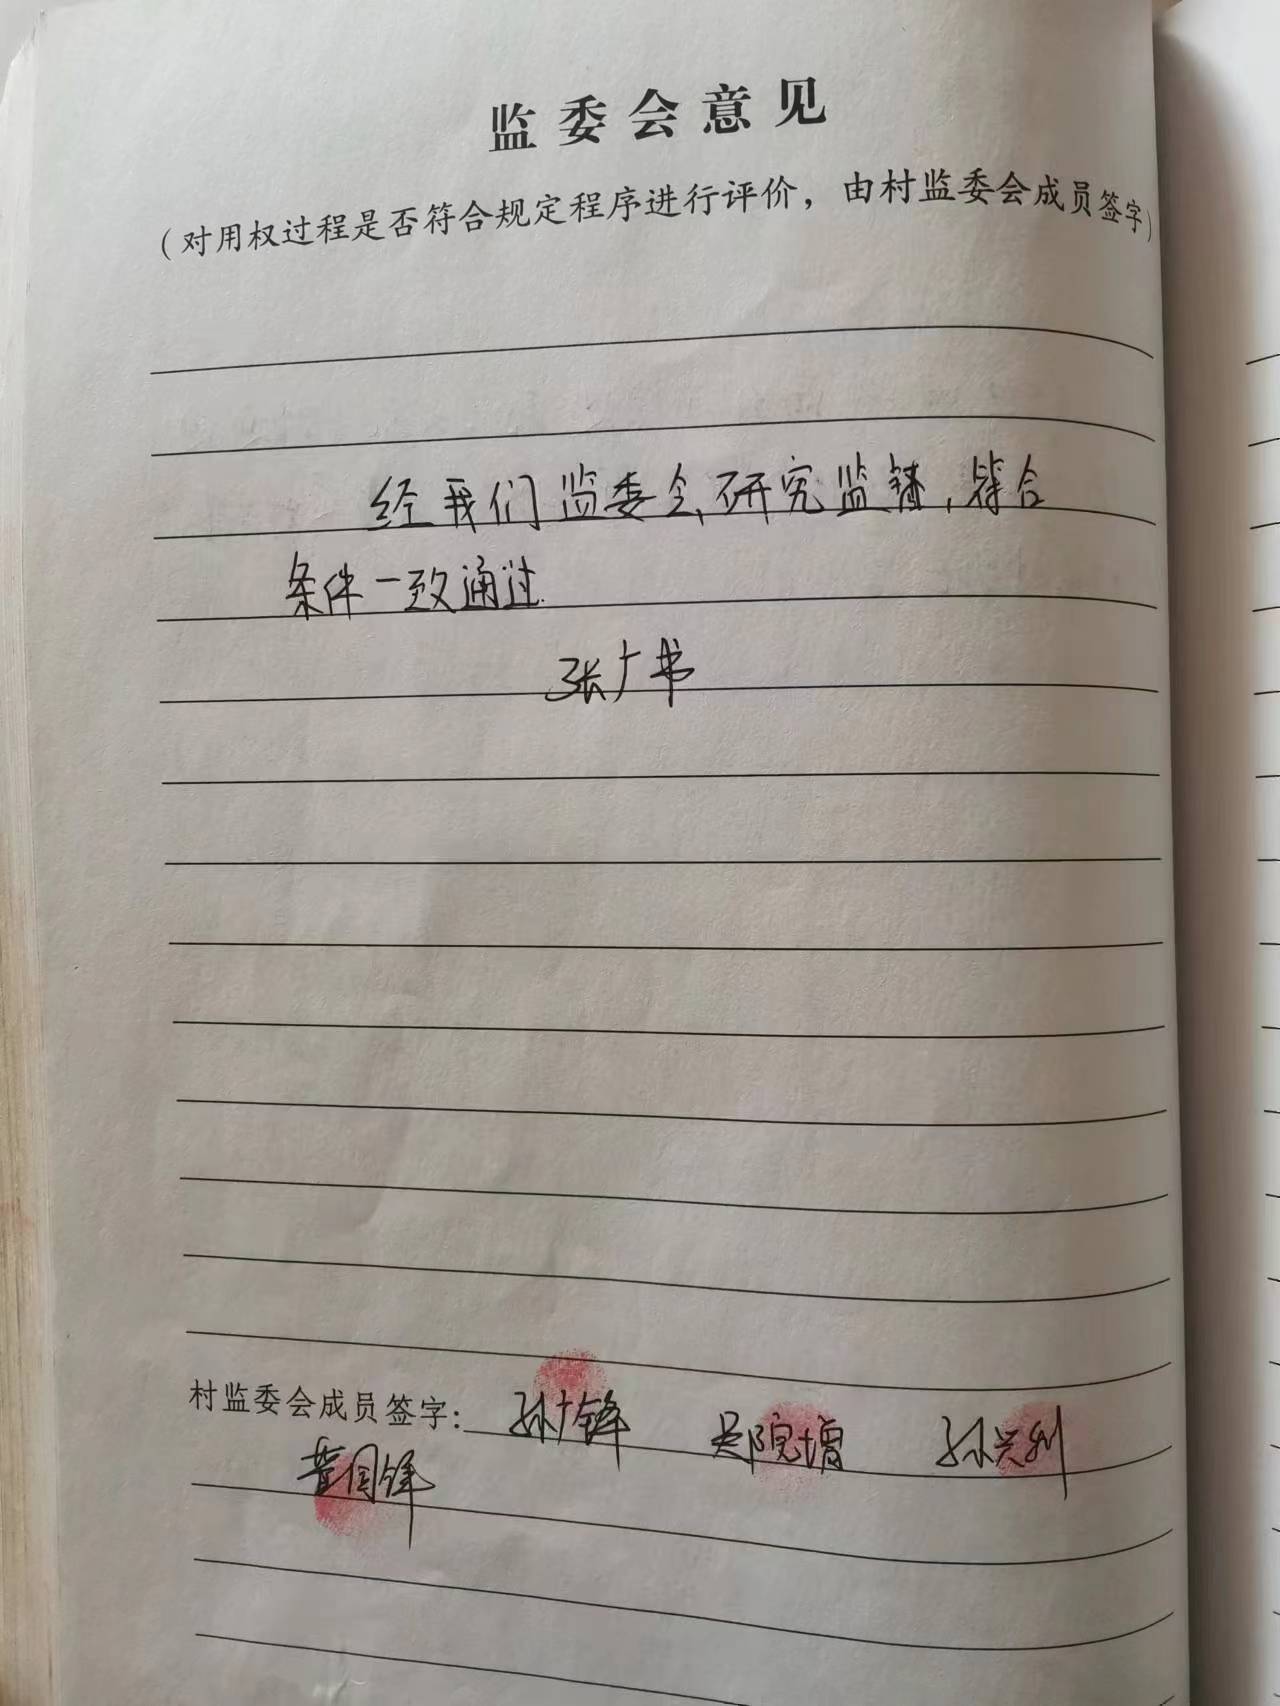 监委会意见
（对用权过程是否符合规定程序进行评价，由村监委会成员签字）
经我们监委会研究监督，符合
条件一致通过.
张广书
村监委会成员签字：孙广锋 吴院增 孙兴利
黄国锋